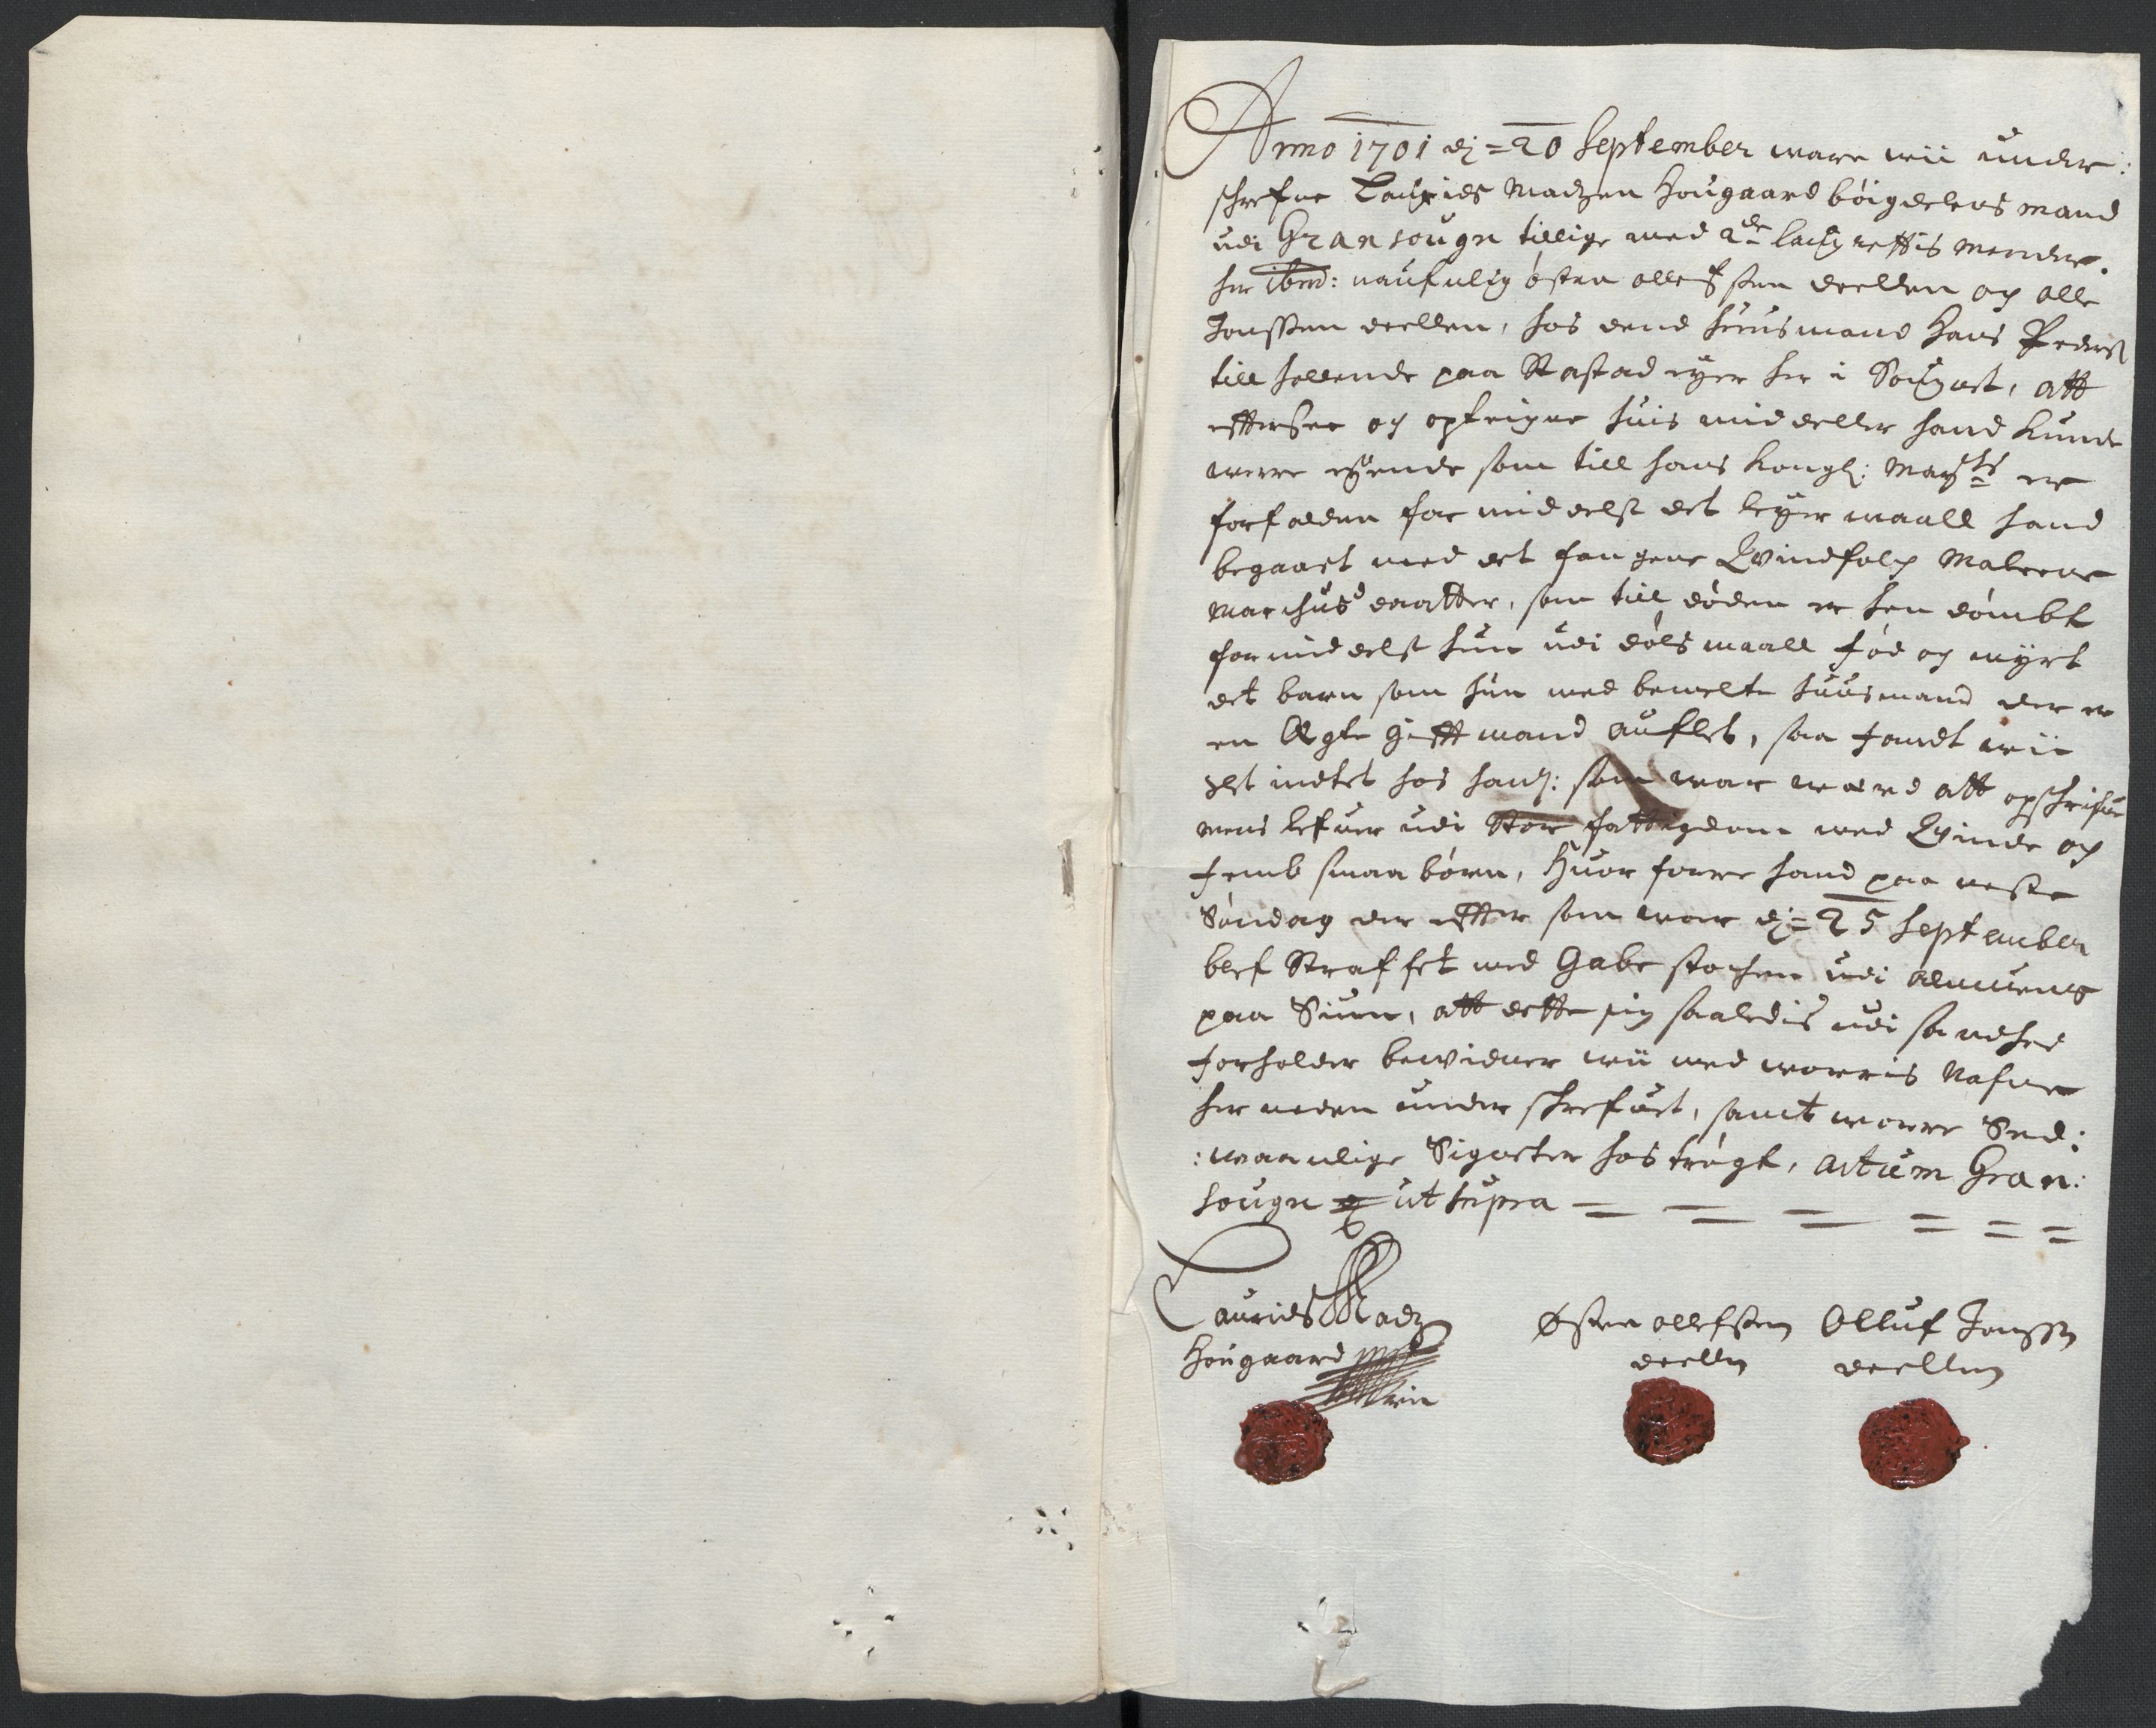 Anno 1701 dj = 20 September ware wii under:
schrefne Lauridts Madzen Hougaard böigdelens mand
udi Gransougn tillige med 2de laugrettis Mende.
her ibmd: naufnlig östen ollefssen dællen og olle
Jonssen dællen, hos dend huusmand Hans Peders
till hollende paa Stastad eyer her i Sougnet, att
efftersee og opteigne huis middeller hand kunde
werre eyende som till hans kongl: Maysts er
forfalden formidelst det leyermaall hand
begaaet med det fangene Qvindfolch Malene
Marchusdaatter, som till döden er hen dömbt
formiddelst hun udi dölsmaall föd og myrt
det barn som hun med bemelte huusmand der er
en Ægte gifft mand aufflet, saa fandt wii
slet indtet hos hand: som war wærd att opschrifue
mens lefuer udi Stor fattigdom med Qvinde og
femb smaa börn, Huor forre hand paa neste
Söndag der effter som war dj = 25 September
blef Straffet med Gabestochen udi Almuens
paa Siun, att dette sig saaledis udi sandhed
forholder bewidner wii med worris Nafne
her neden under schrefuet, samt worre Sed:
:waanlige Signeter hos trögt, Actum Gran:
sougn ut supra
Laurids Madz
Hougaard
Østen ollefssen
dællen
Olluf Jonssen
dællen